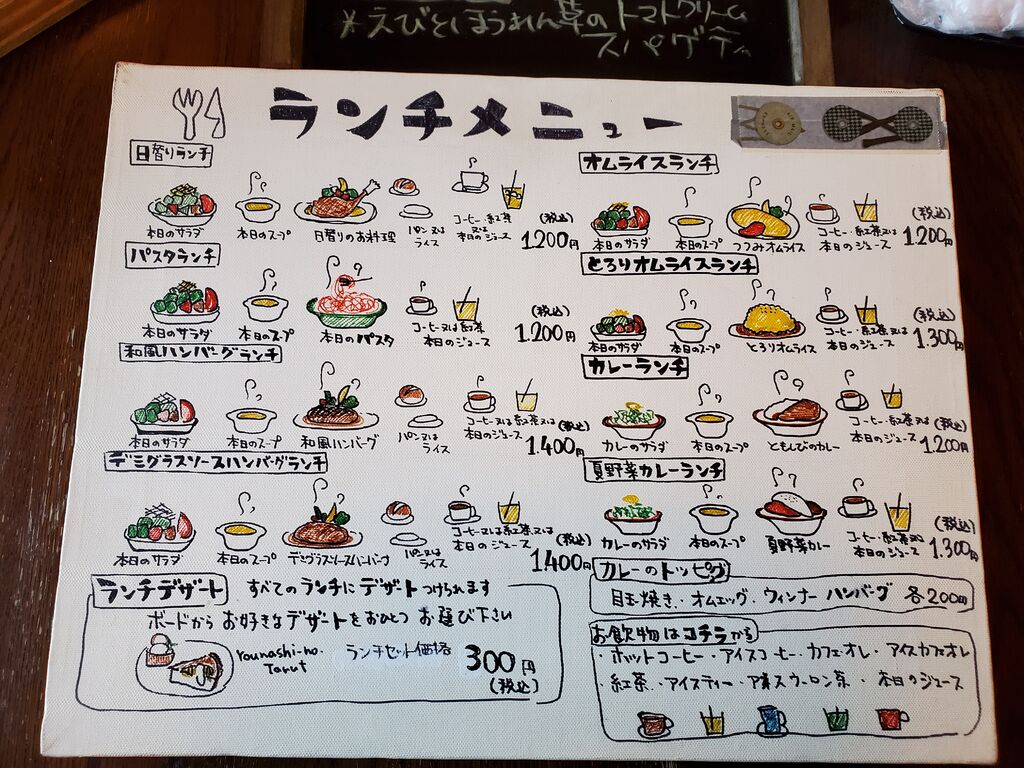 *えびとほうれん草のトマトクリーム
スパゲティ
ランチメニュー
日替りランチ
本日のサラダ
本日のスープ
日替りのお料理
パン又は
ライス
コーヒー・紅茶
又は
本日のジュース
(税込)
1200円
パスタランチ
本日のサラダ
本日のスープ
本日のパスタ
コーヒー又は紅茶
本日のジュース
(税込)
1.200円
和風ハンバーグランチ
本日のサラダ
本日のスープ
和風ハンバーグ
パン又は
ライス
コーヒー又は紅茶又は
本日のジュース
(税込)
1.400円
デミグラスソースハンバーグランチ
本日のサラダ
本日のスープ
デミグラスソースハンバーグ
パン又は
ライス
コーヒー又は紅茶又は
本日のジュース
(税込)
1.400円
ランチデザート
すべてのランチにデザートつけられます
ボードからお好きなデザートをおひとつお選び下さい
Younashi-no.
Tarut
ランチセット価格
300円
(税込)
オムライスランチ
本日のサラダ
本日のスープ
つつみオムライス
コーヒー・紅茶又は
本日のジュース
(税込)
1.200円
とろりオムライスランチ
本日のサラダ
本日のスープ
とろりオムライス
コーヒー・紅茶又は
本日のジュース
(税込)
1.300円
カレーランチ
カレーのサラダ
本日のスープ
ともしびのカレー
コーヒー・紅茶又は
本日のジュース
(税込)
1.200円
夏野菜カレーランチ
カレーのサラダ
本日のスープ
夏野菜カレー
コーヒー・紅茶又は
本日のジュース
(税込)
1.300円
カレーのトッピング
目玉焼き・オムエッグ・ウィンナー ハンバーグ 各200円
お飲物はコチラから
・ホットコーヒー・アイスコーヒー・カフェオレ・アイスカフェオレ
・紅茶・アイスティー・アイスウーロン茶・本日のジュース